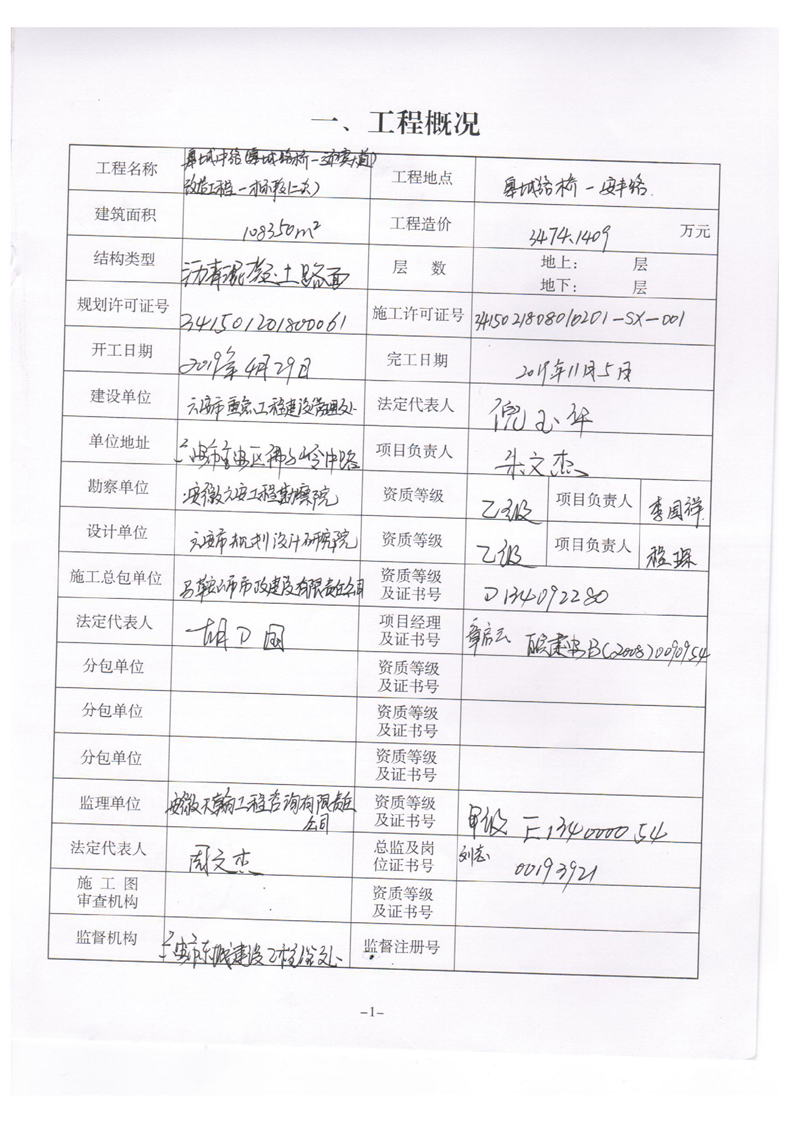 一、工程概况
工程名称
改造工程一标段(二次)
工程地点
皋城路桥-安丰路
建筑面积
108350m²
工程造价
3474.1409 万元
结构类型
沥青混凝土路面
层 数
地上: 层
地下: 层
规划许可证号
341501201800061
施工许可证号
3415021808010201-SX-001
开工日期
2019年4月29日
完工日期
2019年11月5日
建设单位
六安市重点工程建设管理处
法定代表人
倪玉年
单位地址
六安市金安区佛子岭中路
项目负责人
朱文杰
勘察单位
安徽六安工程勘察院
资质等级
乙级
项目负责人
李国祥
设计单位
六安市规划设计研究院
资质等级
乙级
项目负责人
程琛
施工总包单位
马鞍山市市政建设有限责任公司
资质等级
及证书号
D134092280
法定代表人
胡卫国
项目经理
及证书号
章启云 皖建安B(2008)0090954
分包单位
资质等级
及证书号
分包单位
资质等级
及证书号
分包单位
资质等级
及证书号
监理单位
工程咨询有限责任
公司
资质等级
及证书号
甲级 E134000054
法定代表人
周文杰
总监及岗
位证书号
00193921
施 工 图
审查机构
资质等级
及证书号
监督机构
监督注册号
-1-